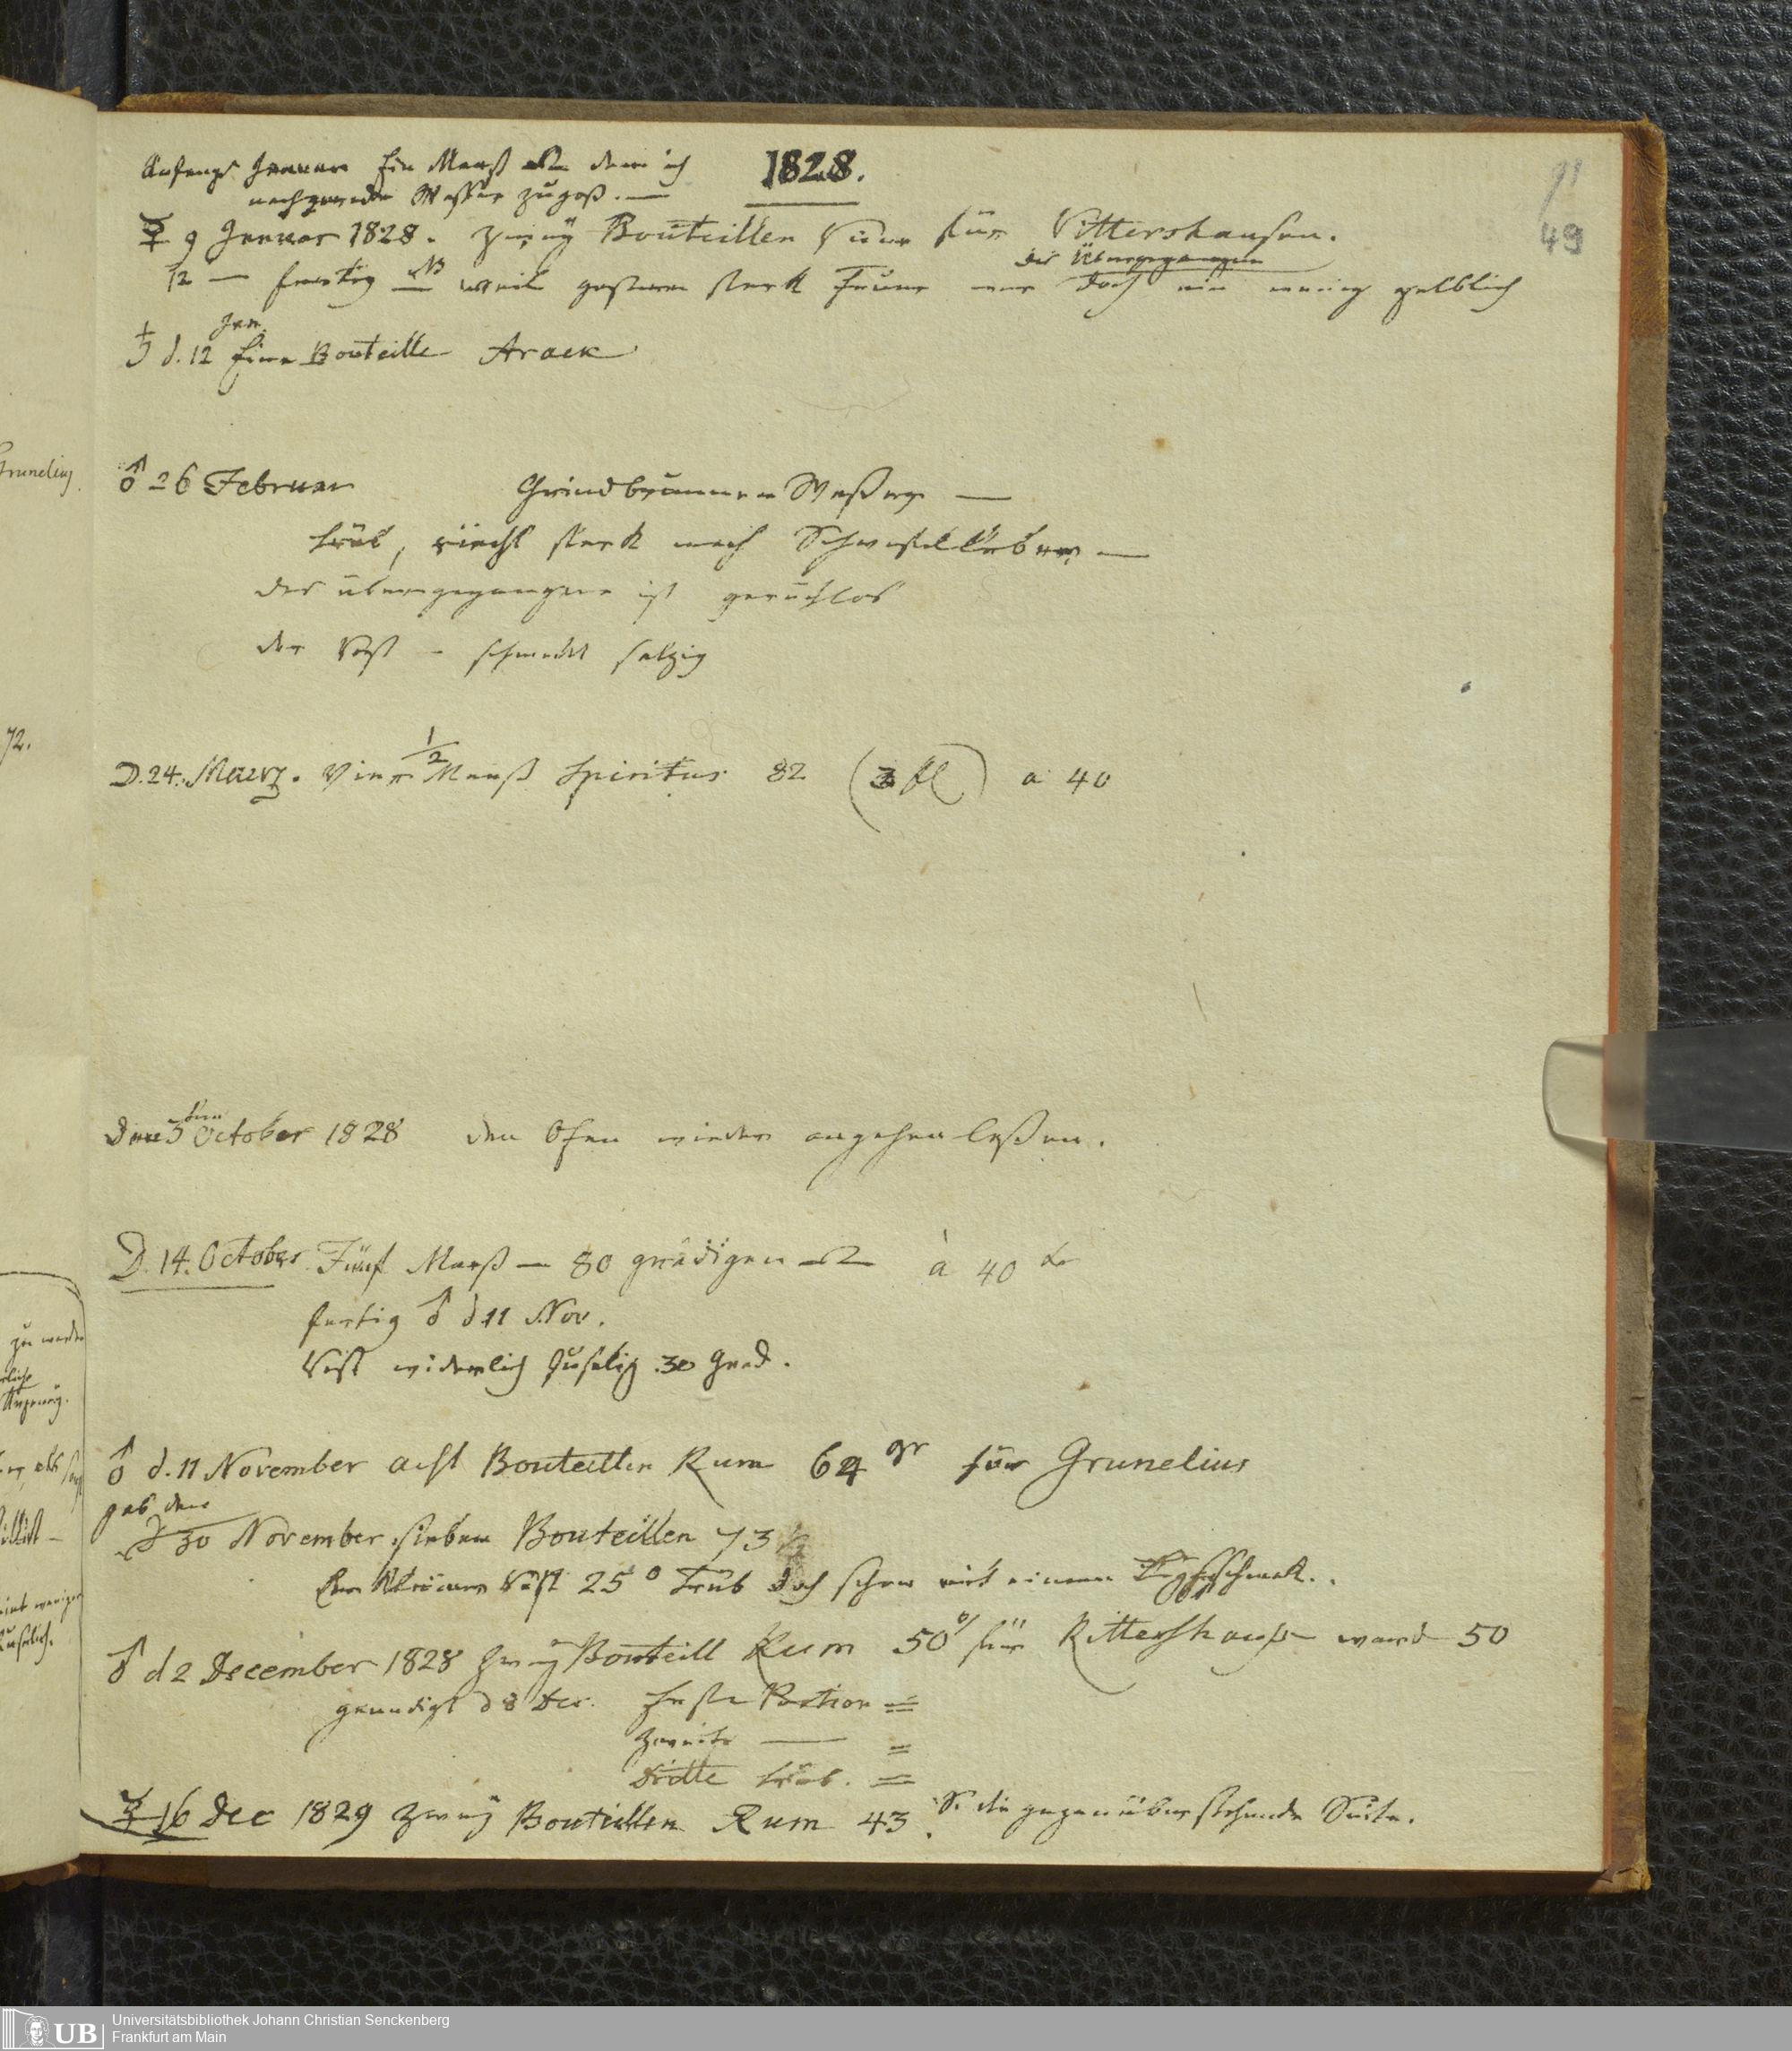 1828.
Anfangs Januar Ein Maaß dem ich
nach gerade Wasser zugoß. —
☿ 9 Januar 1828. Zwey Bouteillen für Rittershausen.
das Übergegangene
12 — fertig NB weil gestern stark Feuer war doch ein wenig gelblich
Jan.
♄ d. 12 Eine Bouteille Arack
♂ 26 Februar Grindbrunnen Waßer —
trüb, riecht stark nach Schwefelleber —
das übergegangene ist geruchlos
der Rest – schmeckt salzig
D. 24. Maerz. Vier 1/2 Maaß Spiritus 82 (3 fl) a 40
Den 3ten October 1828 den Ofen wieder angehen laßen.
D. 14. October Fünf Maaß — 80 grädigen à 40
fertig ♂ d 11 Nov.
Rest widerlich fuselig 30 Grad.
♂ d. 11 November acht Bouteillen Rum 64 gr für Grunelius
gab den
30 November sieben Bouteillen 73
Rest 25° trüb doch schon mit einem
♂ d 2 December 1828 Zwey Bouteill Rum 50° für Rittershaus ward 50
geendigt d 8 Dec. Erste Portion =
zweite — =
dritte trüb. =
☿ 16 Dec 1829 zwey Bouteillen Rum 43. S. die gegenüber stehende Seite.
91
49
Grunelius.
72.
zu
UB
Universitätsbibliothek Johann Christian Senckenberg
Frankfurt am Main